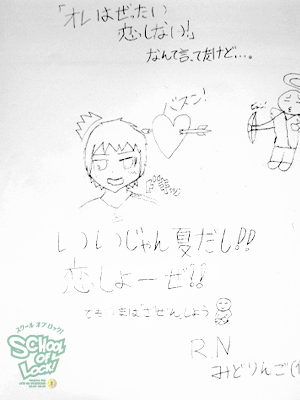 「オレはぜったい
恋しない!」
なんて言ってたけど…。
バスン!
いいじゃん夏だし!!
恋しよーぜ!!
でも
しよう
R.N
みどりんご(1
スクール オブ ロック!
SCHOOL
OF
LOCK!